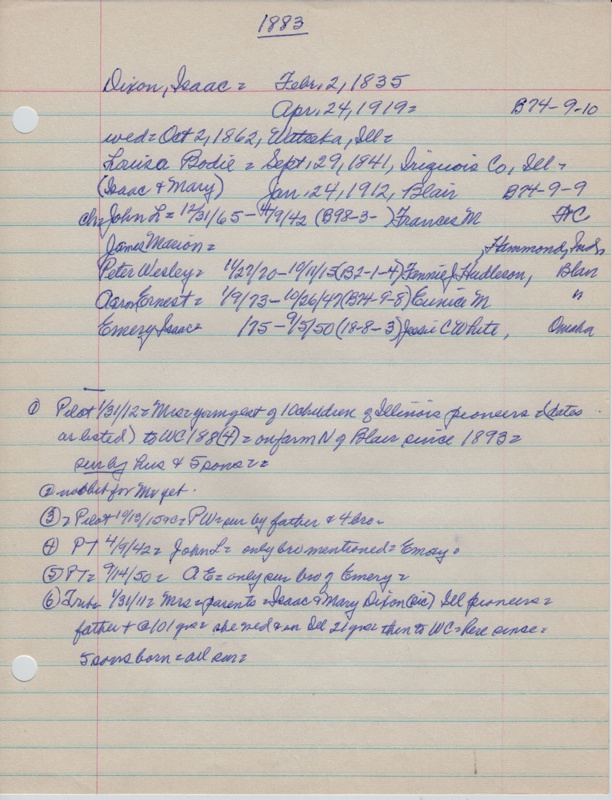 1883
Dixon, Isaac = Febr. 2, 1835
Apr. 24, 1919 = B74-9-10
wed = Oct 2, 1862, Watseka, Ill =
Louisa Bodie = Sept. 29, 1841, Iriquois Co, Ill =
(Isaac & Mary) Jan. 24, 1912, Blair B74-9-9
ch = John L = 12/31/65 - 4/9/42 (B98-3- ) Frances M
James Marion = , Hammond, Ind.
Peter Wesley = 11/27/70 - 10/10/15 (B2-1-4) Fennie J Hudleson, Blair
Aaron Ernest = 1/9/73 - 10/26/47 (B74-9-8) Eunice M "
Emery Isaac = /75 - 9/5/50 (18-8-3) Jessie C White, Omaha
① Pilot 1/31/12 = Mrs = youngest of 10 children of Illinois pioneers = (dates
as listed) to WC 188(4) = on farm N of Blair since 1893 =
sur by hus & 5 sons = =
② no obit for Mr yet.
③ = Pilot 10/13/15 = PW = sur by father & 4 bro =
④ PT 4/9/42 = John L = only bro mentioned = Emery =
⑤ PT = 9/14/50 = AE = only sur bro of Emery =
⑥ Trib = 1/31/11 = Mrs = parents = Isaac & Mary Dixon (sic) Ill pioneers =
father + @ 101 yrs = she wed & in Ill 21 yrs then to WC = here since =
5 sons born = all sur =